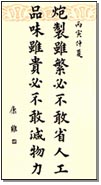 丙寅仲夏
炮製雖繁必不敢省人工
品味雖貴必不敢減物力